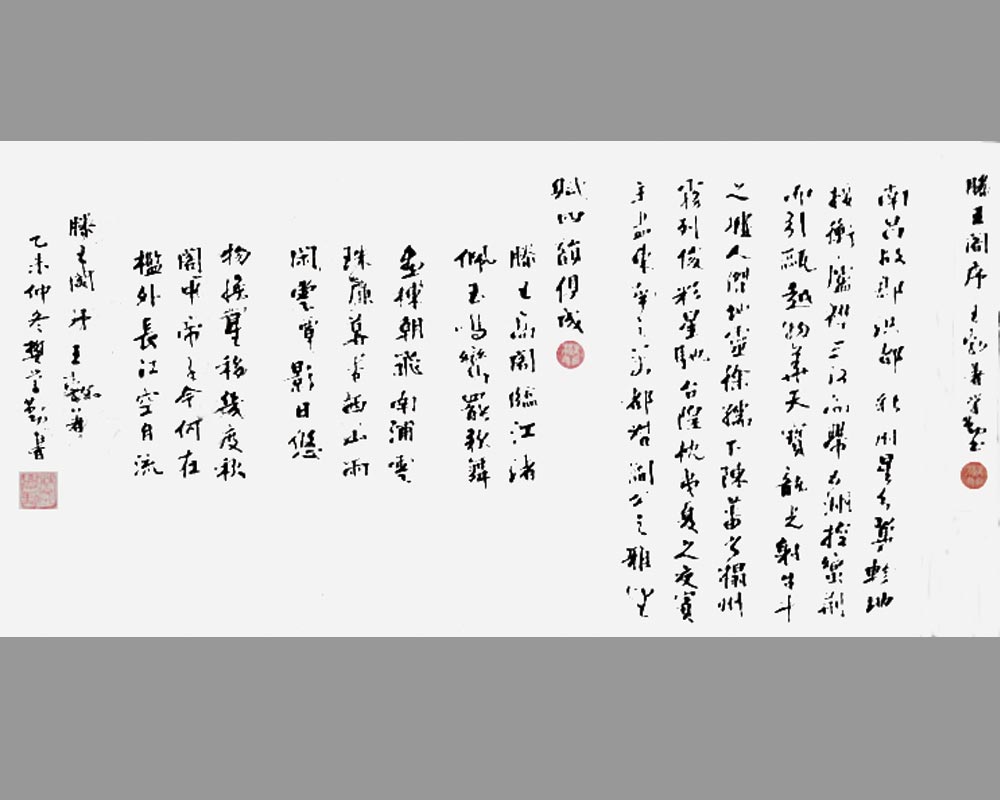 滕王阁序 王勃 書
南昌故郡洪都新州星分翼軫地
接衡廬襟三江而帶五湖控蠻荊
而引甌越物華天寶龍光射牛斗
之墟人傑地靈徐孺下陳蕃之榻州
霧列俊彩星馳台隍枕夷夏之交賓
主盡東南之美都督閻公之雅望
賦四韻俱成
滕王高閣臨江渚
佩玉鳴鸞罷歌舞
畫棟朝飛南浦雲
珠簾暮書西山雨
閑雲潭影日悠
物換星移幾度秋
閣中帝子今何在
檻外長江空自流
滕王閣序 王勃
乙未仲冬 書